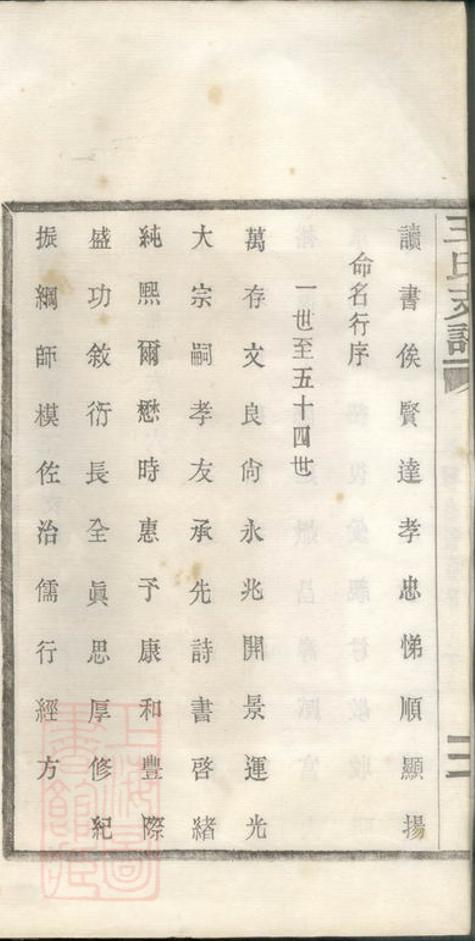 王氏支譜
讀書俟賢達孝忠悌順顯揚
命名行序
一世至五十四世
萬存文良尙永兆開景運光
大宗嗣孝友承先詩書啓緒
純熙爾懋時惠予康和豐際
盛功敘衍長全眞思厚修紀
振綱師模佐治儒行經方
上海圖
書館藏